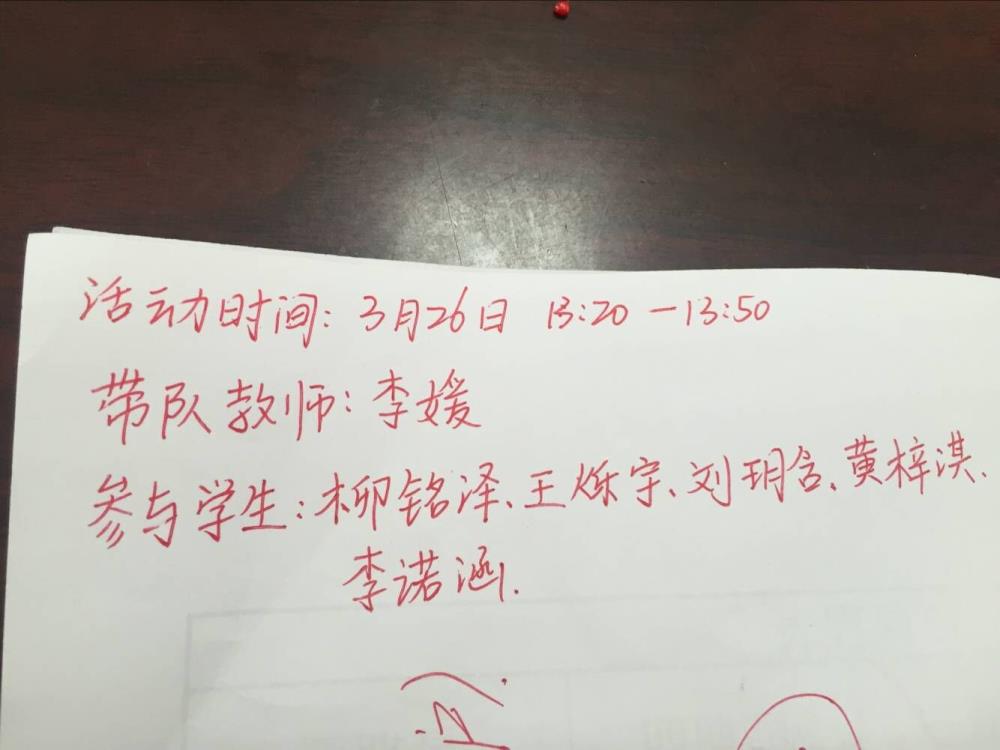 活动时间：3月26日 13:20 —13:50
带队教师：李媛
参与学生：柳铭泽、王烁宇、刘玥含、黄梓淇、
李诺涵.